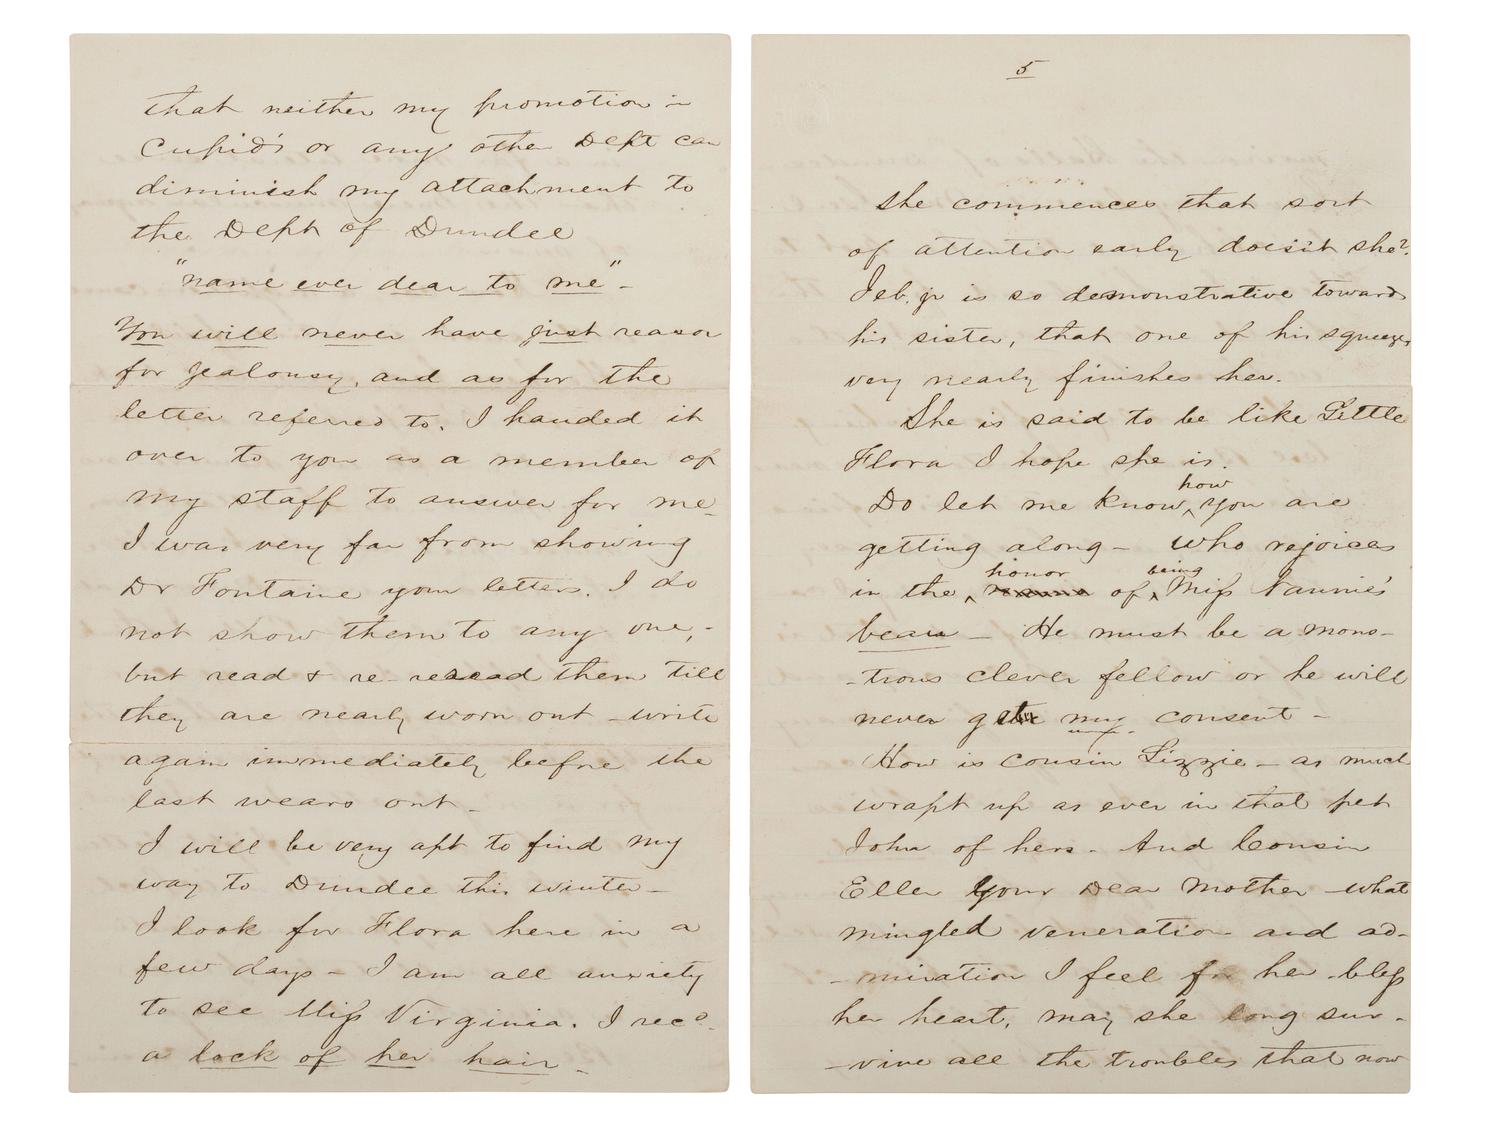 that neither my promotion in
Cupid's or any other Dept can
diminish my attachment to
the Dept of Dundee
"name ever dear to me" -
You will never have just reason
for jealousy, and as for the
letter referred to. I handed it
over to you as a member of
my staff to answer for me-
I was very far from showing
Dr Fontaine your letters. I do
not show them to any one, -
but read & re-reread them till
they are nearly worn out - write
again immediately before the
last wears out -
I will be very apt to find my
way to Dundee this winter -
I look for Flora here in a
few days - I am all anxiety
to see Miss Virginia. I recd.
a lock of her hair -
5
She commences that sort
of attention early doesn't she?
Jeb. jr is so demonstrative towards
his sister, that one of his squeezes
very nearly finishes her.
She is said to be like Little
Flora I hope she is.
how
Do let me know, you are
getting along - who rejoices
honor being
in the of Miss Nannie's
beau - He must be a mons-
-trous clever fellow or he will
never get my consent -
How is cousin Lizzie - as much
wrapt up as ever in that pet
John of hers - And Cousin
Ellen your Dear Mother - what
mingled veneration and ad-
-miration I feel for her - bless
her heart, may she long sur-
-vive all the troubles that now